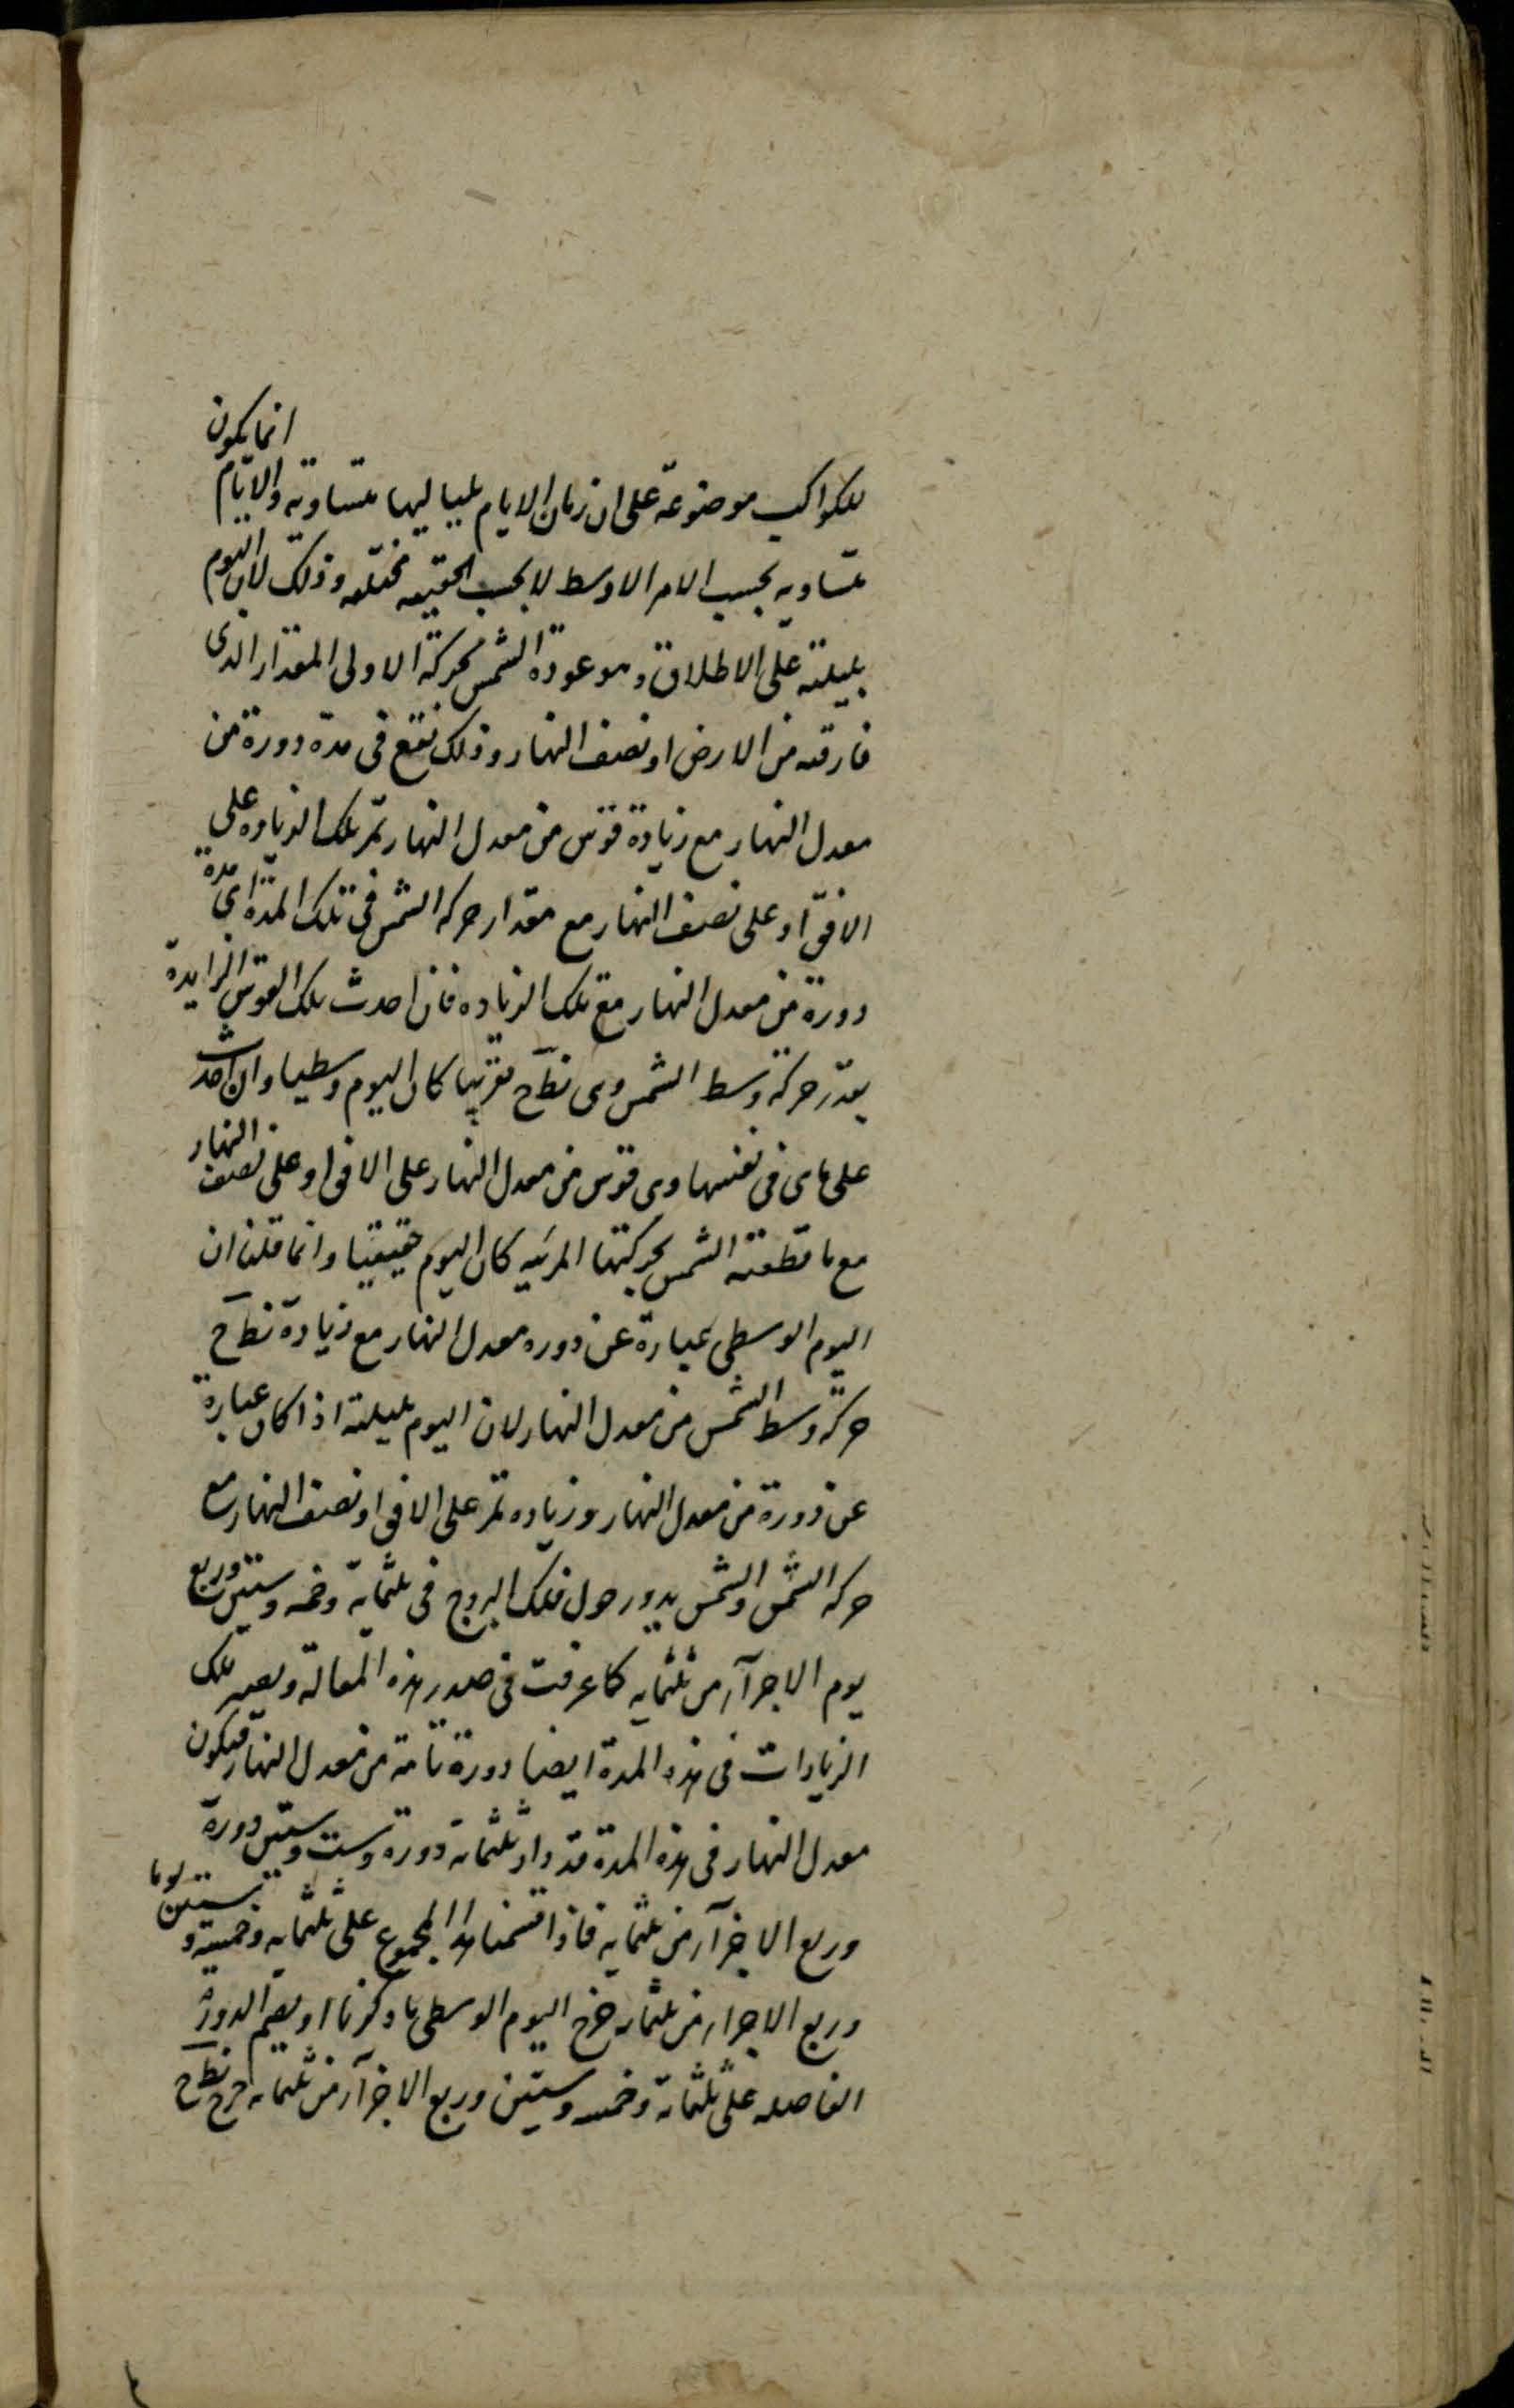 للكواكب موضوعة على ان زمان الايام بلياليها متساوية والايام انما يكون
متساويه بحسب الامر الاوسط لا بحسب الحقيقه مختلفه وذلك لان اليوم
بليلته على الاطلاق وهو عودة الشمس بحركة الاولى المقدار الذى
فارقته من الارض او نصف النهار وذلك تقع فى مدة دورة من
معدل النهار مع زيادة قوس من معدل النهار تمر تلك الزياده على
الافق او على نصف النهار مع مقدار حركه الشمس فى تلك المدة اى مدة
دورة من معدل النهار مع تلك الزياده فان احدث تلك القوس الزايدة
بقدر حركة وسط الشمس وهى نط ح تقريبا كان اليوم وسطيا وان احدث
على ما هى فى نفسها وهى قوس من معدل النهار على الافق او على نصف النهار
مع ما قطعته الشمس بحركتها المرئيه كان اليوم حقيقيا وانما قلنا ان
اليوم الوسطى عبارة عن دوره معدل النهار مع زيادة نط ح
حركة وسط الشمس من معدل النهار لان اليوم بليلته اذا كان عبارة
عن دورة من معدل النهار وزياده تمر على الافق او نصف النهار مع
حركه الشمس والشمس يدور حول فلك البروج فى ثلثماية وخمسه وستين وربع
يوم الا جزآ من ثلثمايه كما عرفت فى صدر هذه المقالة ويصير تلك
الزيادات فى هذه المدة ايضا دورة تامة من معدل النهار فيكون
معدل النهار فى هذه المدة قد دار ثلثماية دورة وست وستين دورة
وربع الا جزآ من ثلثمايه فاذا قسمنا هذا المجموع على ثلثمايه وخمسة وستين يوما
وربع الا جزا من ثلثمايه خرج اليوم الوسطى ما ذكرنا او يقسم الدورة
الفاصله على ثلثماية وخمسه وستين وربع الا جزآ من ثلثمايه خرج نط ح